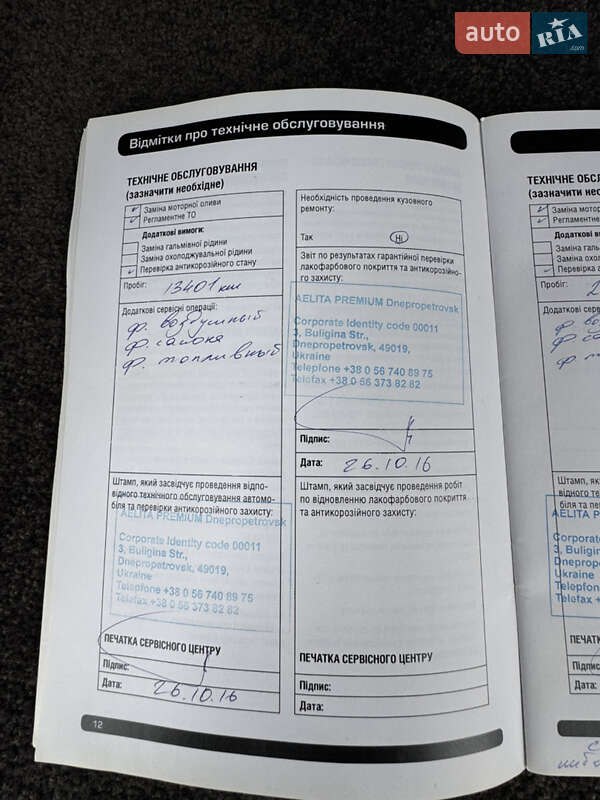 auto RIA.com
Відмітки про технічне обслуговування
ТЕХНІЧНЕ ОБСЛУГОВУВАННЯ
(зазначити необхідне)
Заміна моторної оливи
Регламентне ТО
Додаткові вимоги:
Заміна гальмівної рідини
Заміна охолоджувальної рідини
Перевірка антикорозійного стану
Пробіг: 13401 км
Додаткові сервісні операції:
ф. воздушный
ф. салона
ф. топливный
Штамп, який засвідчує проведення відпо-
відного технічного обслуговування автомо-
біля та перевірки антикорозійного захисту:
AELITA PREMIUM Dnepropetrovsk
Corporate Identity code 00011
3, Buligina Str.,
Dnepropetrovsk, 49019,
Ukraine
Telepfone +38 0 56 740 89 75
Telefax +38 0 56 373 82 82
ПЕЧАТКА СЕРВІСНОГО ЦЕНТРУ
Підпис:
Дата: 26.10.16
12
Необхідність проведення кузовного
ремонту:
Так Ні
Звіт по результатах гарантійної перевірки
лакофарбового покриття та антикорозійно-
го захисту:
AELITA PREMIUM Dnepropetrovsk
Corporate Identity code 00011
3, Buligina Str.,
Dnepropetrovsk, 49019,
Ukraine
Telepfone +38 0 56 740 89 75
Telefax +38 0 56 373 82 82
Підпис:
Дата: 26.10.16
Штамп, який засвідчує проведення робіт
по відновленню лакофарбового покриття
та антикорозійного захисту:
ПЕЧАТКА СЕРВІСНОГО ЦЕНТРУ
Підпис:
Дата:
ТЕХНІЧНЕ ОБСЛ
(зазначити необ
Заміна мотор
Регламентне
Додаткові в
Заміна галь
Заміна охол
Перевірка а
Пробіг: 2
Додаткові серв
ф. во
ф. са
Штамп, як
відного технічного
біля та перев
AELITA P
Corporate
3, Buligin
Dneprop
Ukraine
Telepfon
Telefax +
ПЕЧАТКА
Підпис
Дата: